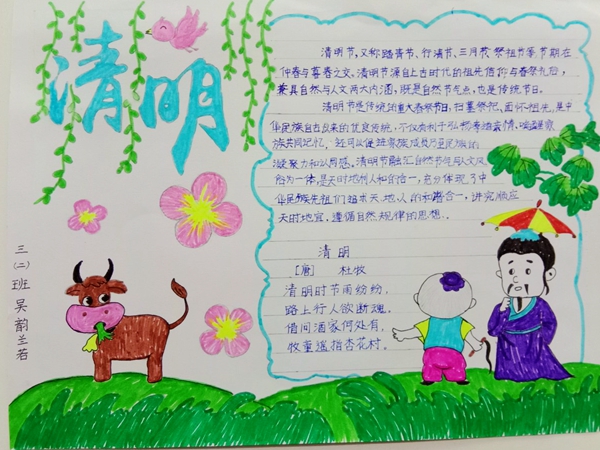 清明
清明节,又称踏青节、行清节、三月节、祭祖节等,节期在
仲春与暮春之交。清明节源自上古时代的祖先信仰与春祭礼俗,
兼具自然与人文两大内涵,既是自然节气点,也是传统节日。
清明节是传统的重大春祭节日,扫墓祭祀、缅怀祖先,是中
华民族自古以来的优良传统,不仅有利于弘扬孝道亲情、唤醒家
族共同记忆,还可以促进家族成员乃至民族的
凝聚力和认同感。清明节融汇自然节气与人文风
俗为一体,是天时地利人和的合一,充分体现了中
华民族先祖们追求天、地、人的和谐合一,讲究顺应
天时地宜、遵循自然规律的思想。
清明
[唐] 杜牧
清明时节雨纷纷,
路上行人欲断魂。
借问酒家何处有,
牧童遥指杏花村。
三(二)班 吴韵兰若